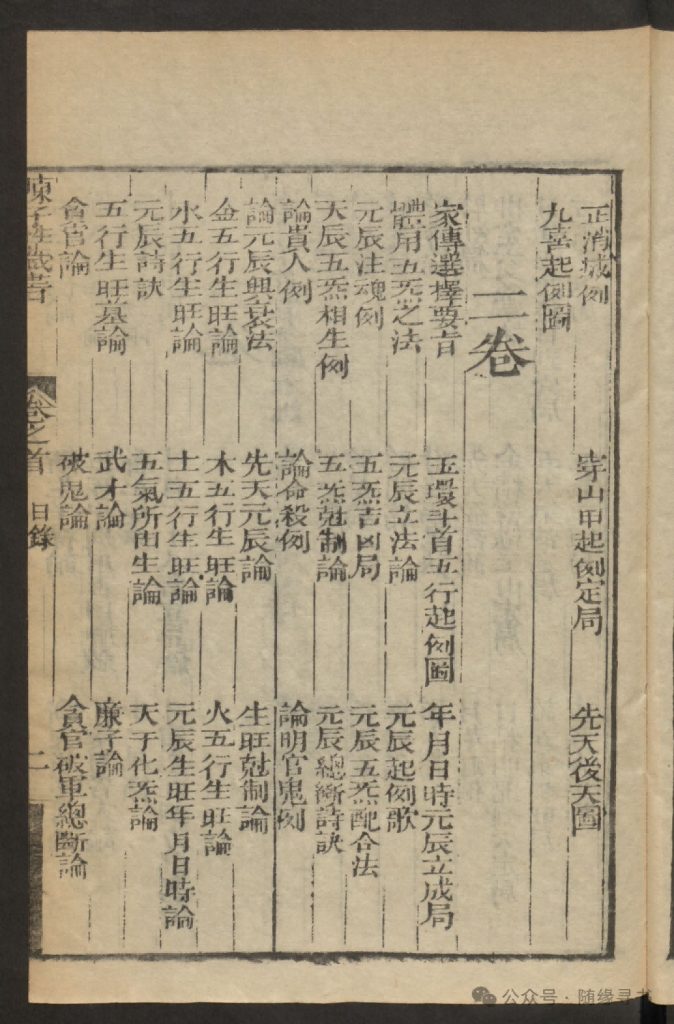 正消城例　穿山甲起例定局　先天後天圖
九喜起例圖
二卷
家傳選擇要旨　玉環斗首五行起例圖　年月日時元辰立成局
體用五炁之法　元辰立法論　元辰起例歌
元辰注魂例　五炁吉凶局　元辰五炁配合法
天辰五炁相生例　五炁尅制論　元辰總斷詩訣
論貴人例　論命殺例　論明官鬼例
論元辰興衰法　先天元辰論　生旺尅制論
金五行生旺論　木五行生旺論　火五行生旺論
水五行生旺論　土五行生旺論　元辰生旺年月日時論
元辰詩訣　五氣所由生論　天干化炁論
五行生旺墓論　武才論　廉子論
貪官論　破鬼論　貪官破軍總斷論
陳子性藏書　卷之首　目錄　二
公众号·随缘寻书